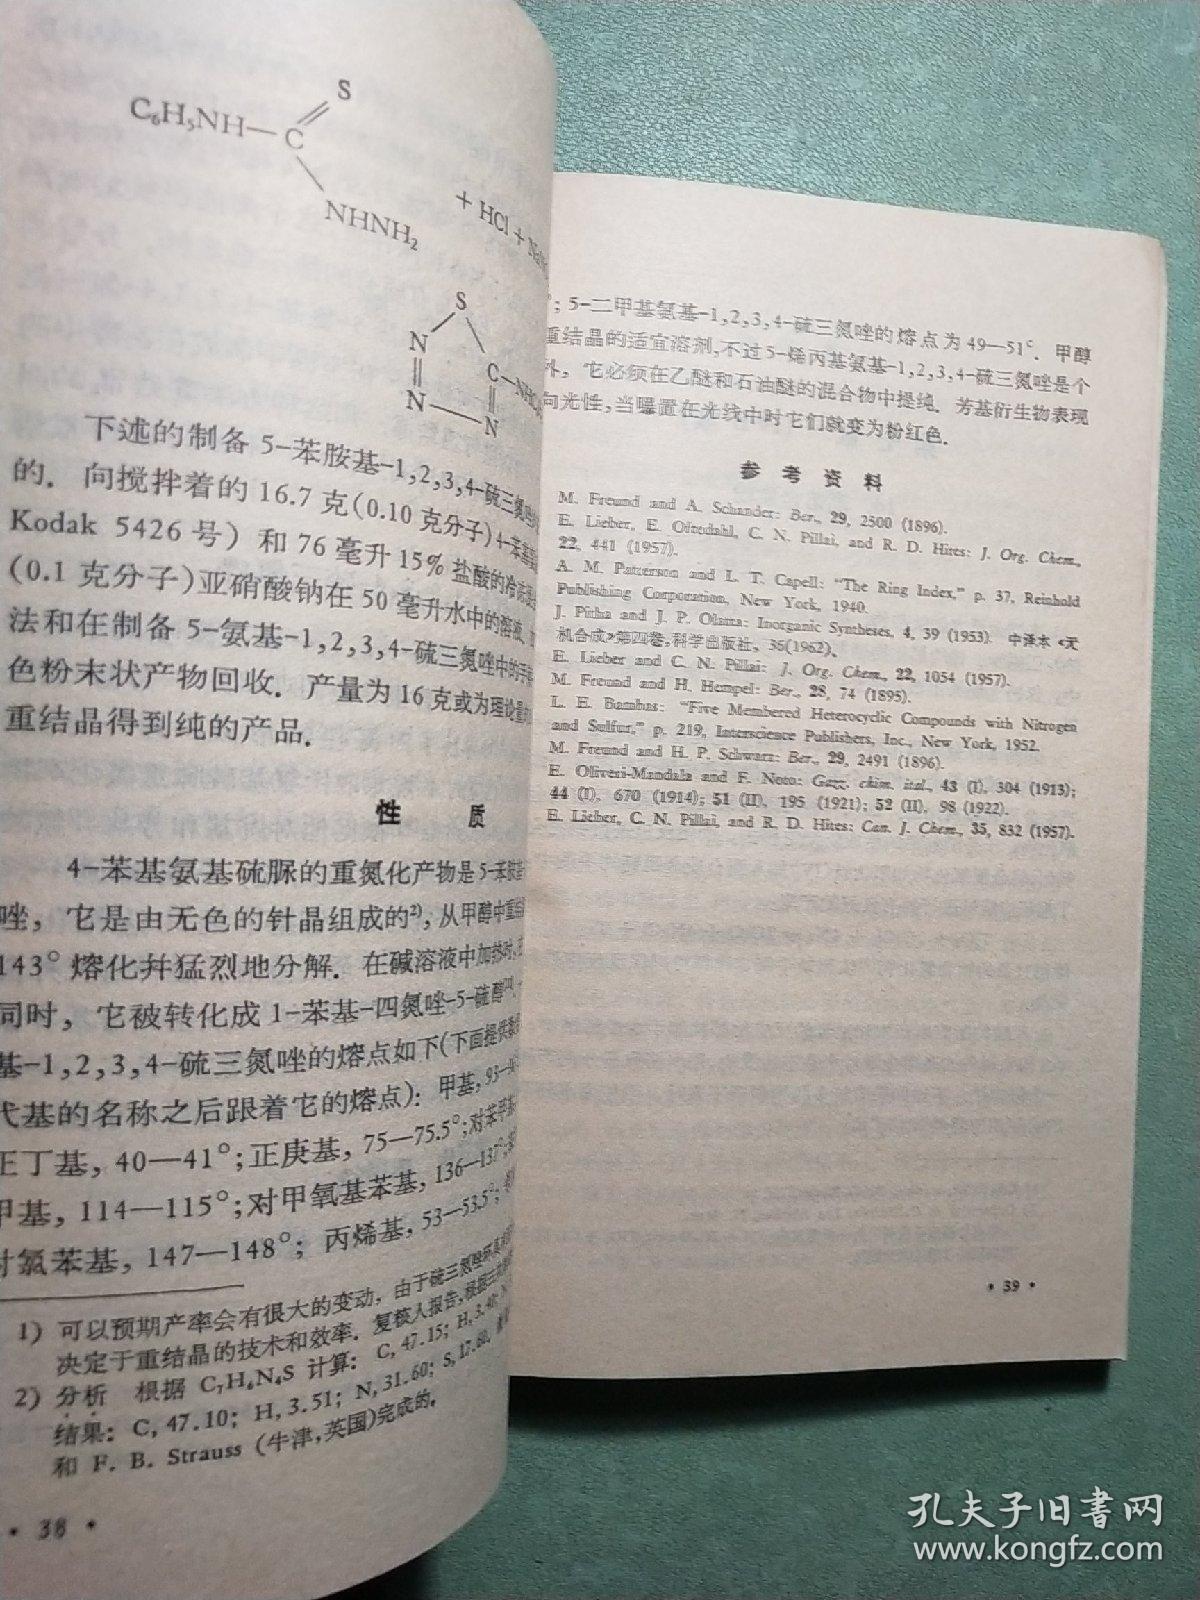 S
C₆H₅NH—C
NHNH₂
+ HCl +
S
N
C—
N
N
下述的制备 5-苯胺基-1,2,3,4-硫三氮
的. 向搅拌着的 16.7 克(0.10 克分子) 4-苯基
Kodak 5426 号) 和 76 毫升 15% 盐酸的冷
(0.1 克分子)亚硝酸钠在 50 毫升水中的溶液.
法和在制备 5-氨基-1,2,3,4-硫三氮唑中的手
色粉末状产物回收. 产量为 16 克或为理论量
重结晶得到纯的产品.
性 质
4-苯基氨基硫脲的重氮化产物是 5-苯胺
唑, 它是由无色的针晶组成的²⁾, 从甲醇中重
143° 熔化并猛烈地分解. 在碱溶液中加热时,
同时, 它被转化成 1-苯基-四氮唑-5-硫醇
基-1,2,3,4-硫三氮唑的熔点如下(下面提供
代基的名称之后跟着它的熔点): 甲基, 93—
正丁基, 40—41°; 正庚基, 75—75.5°; 对苯甲基
甲基, 114—115°; 对甲氧基苯基, 136—137°;
对氯苯基, 147—148°; 丙烯基, 53—53.5°;
1) 可以预期产率会有很大的变动, 由于硫三氮唑环
决定于重结晶的技术和效率. 复核人报告, 根据
2) 分析 根据 C₇H₆N₄S 计算: C, 47.15; H, 3.40; N
结果: C, 47.10; H, 3.51; N, 31.60; S, 17.60.
和 F. B. Strauss (牛津, 英国)完成的.
• 38 •
°; 5-二甲基氨基-1,2,3,4-硫三氮唑的熔点为 49—51°. 甲醇
重结晶的适宜溶剂, 不过 5-烯丙基氨基-1,2,3,4-硫三氮唑是个
外, 它必须在乙醚和石油醚的混合物中提纯. 芳基衍生物表现
向光性, 当曝置在光线中时它们就变为粉红色.
参考资料
M. Freund and A. Schander: Ber., 29, 2500 (1896).
E. Lieber, E. Oftedahl, C. N. Pillai, and R. D. Hites: J. Org. Chem.,
22, 441 (1957).
A. M. Patterson and L. T. Capell: "The Ring Index," p. 37, Reinhold
Publishing Corporation, New York, 1940.
J. Pitha and J. P. Olama: Inorganic Syntheses, 4, 39 (1953). 中译本 《无
机合成》第四卷, 科学出版社, 35(1962)、
E. Lieber and C. N. Pillai: J. Org. Chem., 22, 1054 (1957).
M. Freund and H. Hempel: Ber., 28, 74 (1895).
L. E. Bambas: "Five Membered Heterocyclic Compounds with Nitrogen
and Sulfur," p. 219, Interscience Publishers, Inc., New York, 1952.
M. Freund and H. P. Schwarz: Ber., 29, 2491 (1896).
E. Oliveri-Mandala and F. Noto: Gazz. chim. ital., 43 (I), 304 (1913);
44 (I), 670 (1914); 51 (II), 195 (1921); 52 (II), 98 (1922).
E. Lieber, C. N. Pillai, and R. D. Hites: Can. J. Chem., 35, 832 (1957).
• 39 •
孔夫子旧书网
www.kongfz.com